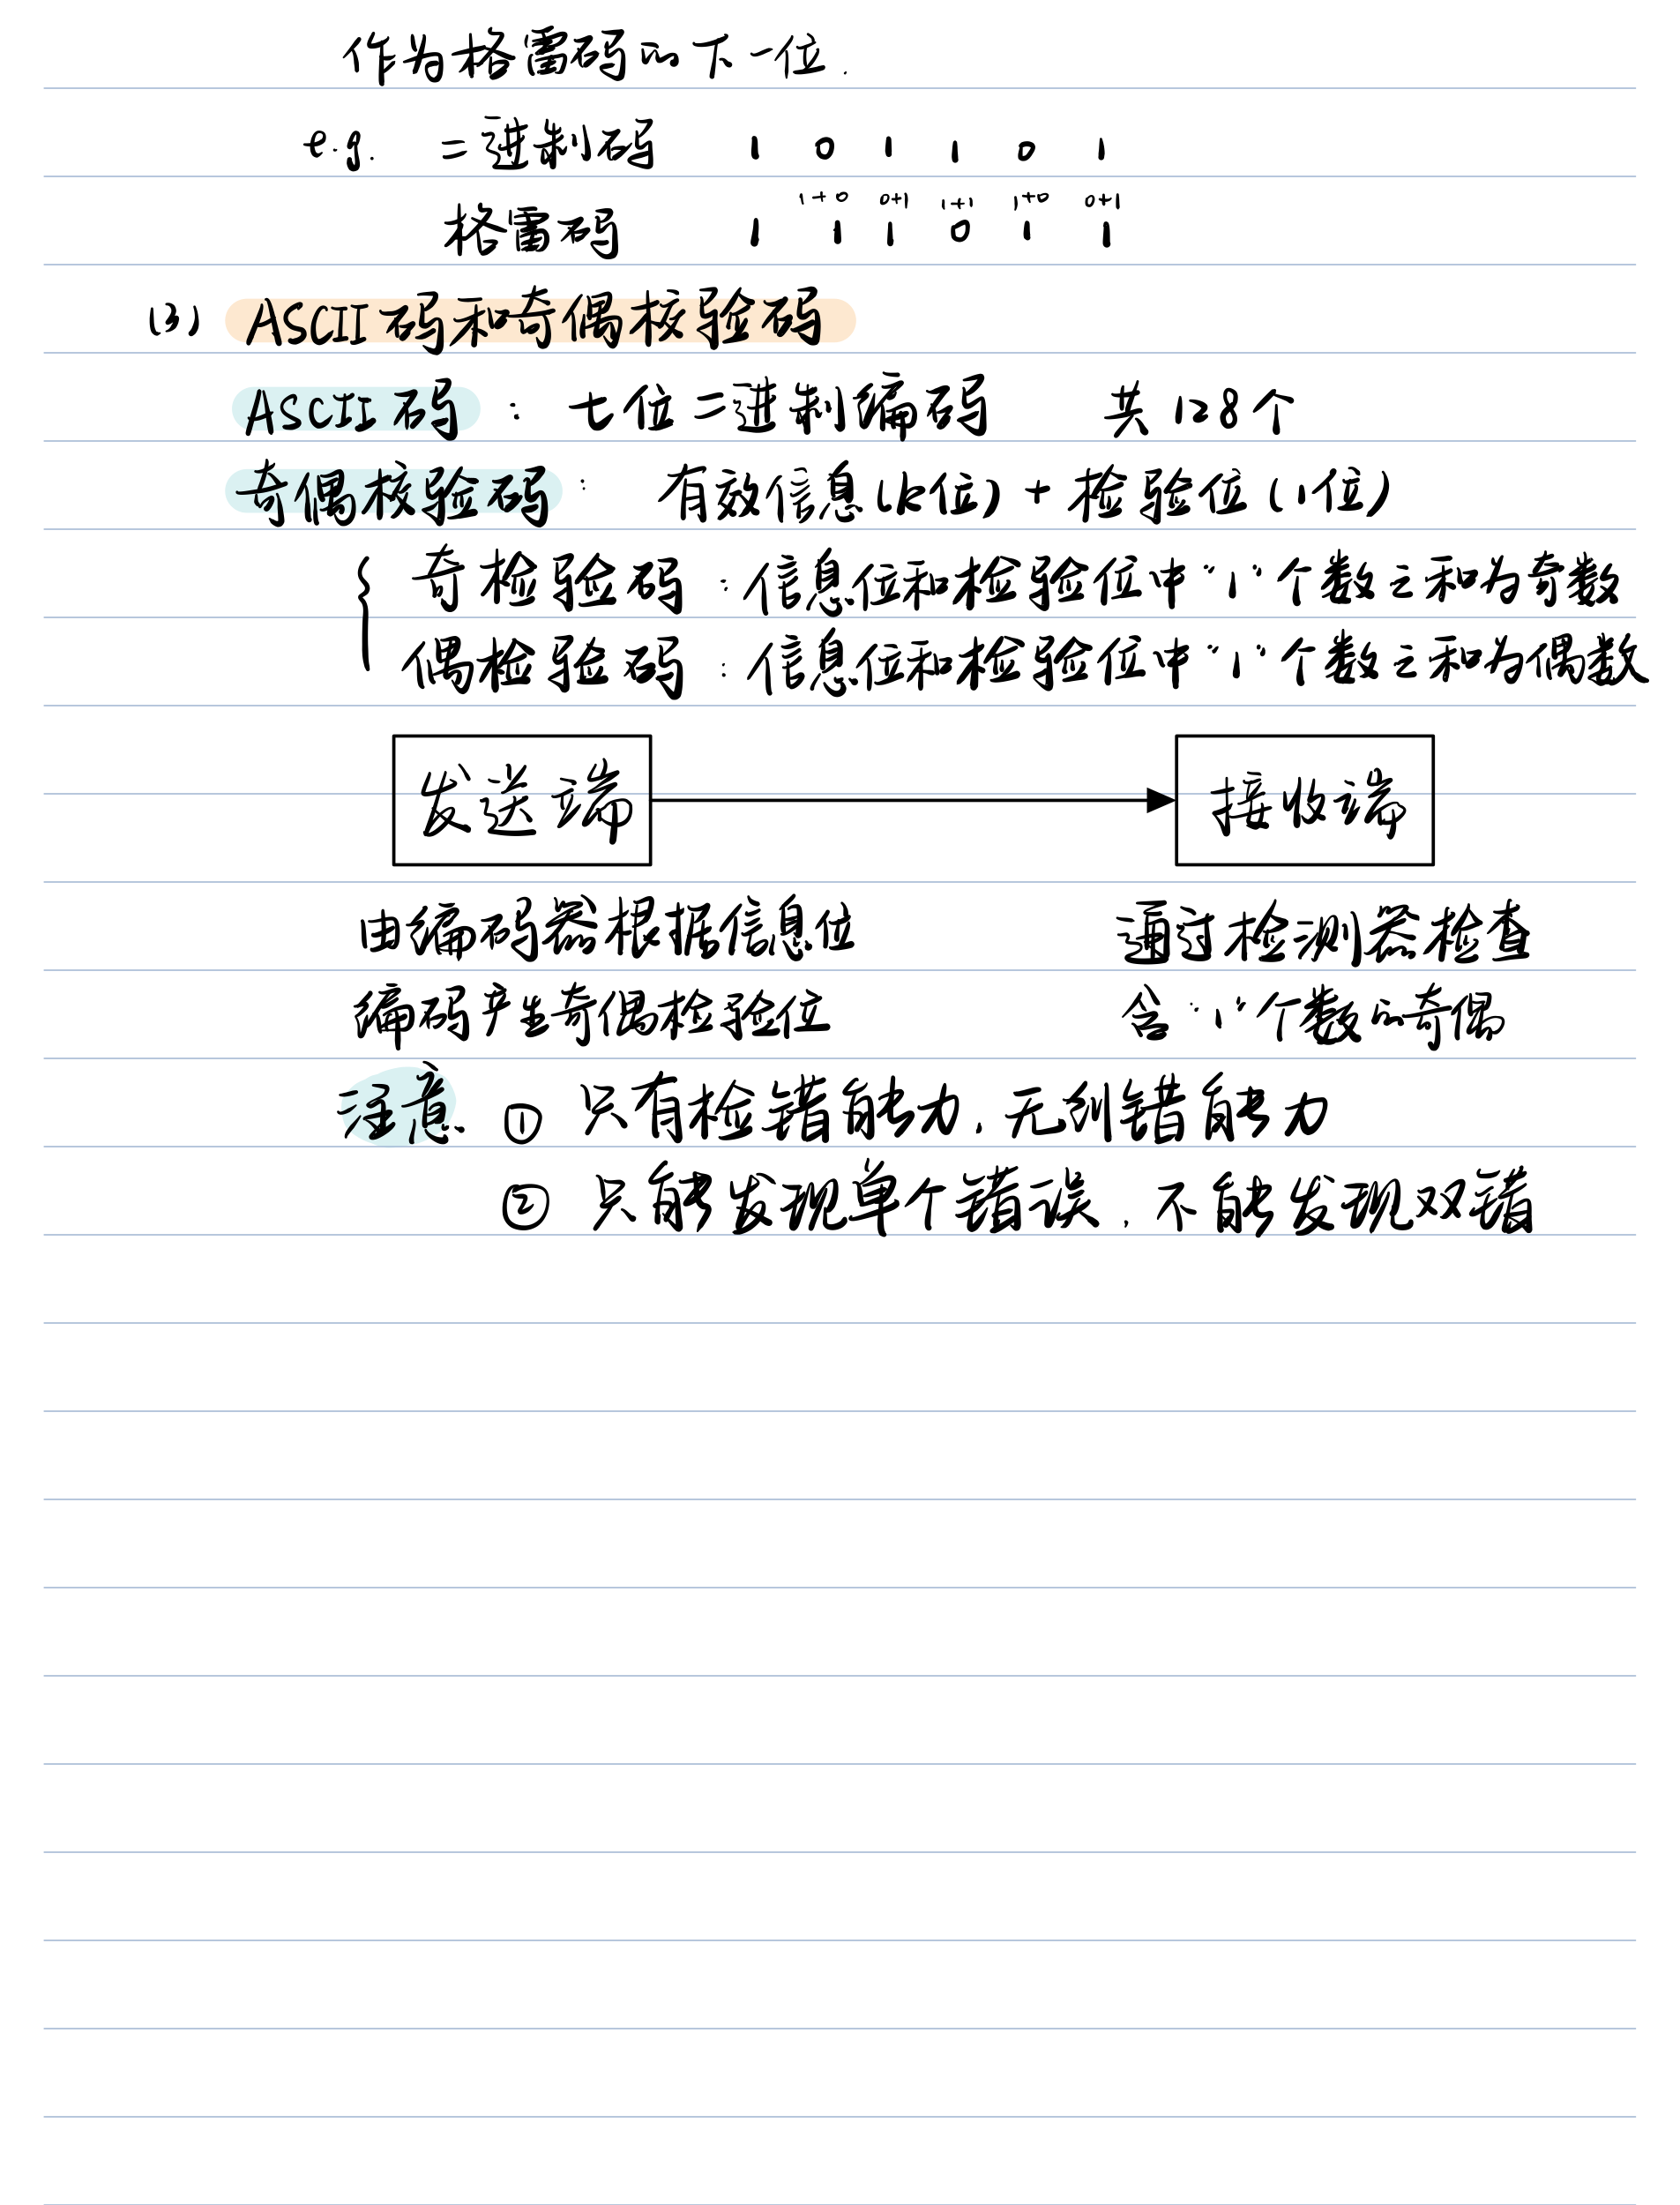 作为格雷码的下一位.
e.g. 二进制码 1 0 1 1 0 1
1+0 0+1 1+1 1+0 0+1
格雷码 1 1 1 0 1 1
(3) ASCII码和奇偶校验码
ASCII码: 七位二进制编码 共128个
奇偶校验码: 有效信息(k位)+检验位(1位)
{ 奇检验码:信息位和检验位中"1"个数之和为奇数
偶检验码:信息位和检验位中"1"个数之和为偶数
发送端 接收端
由编码器根据信息位 通过检测器检查
编码产生奇偶检验位 含"1"个数的奇偶
注意. ① 只有检错能力,无纠错能力
② 只能发现单个错误,不能发现双错